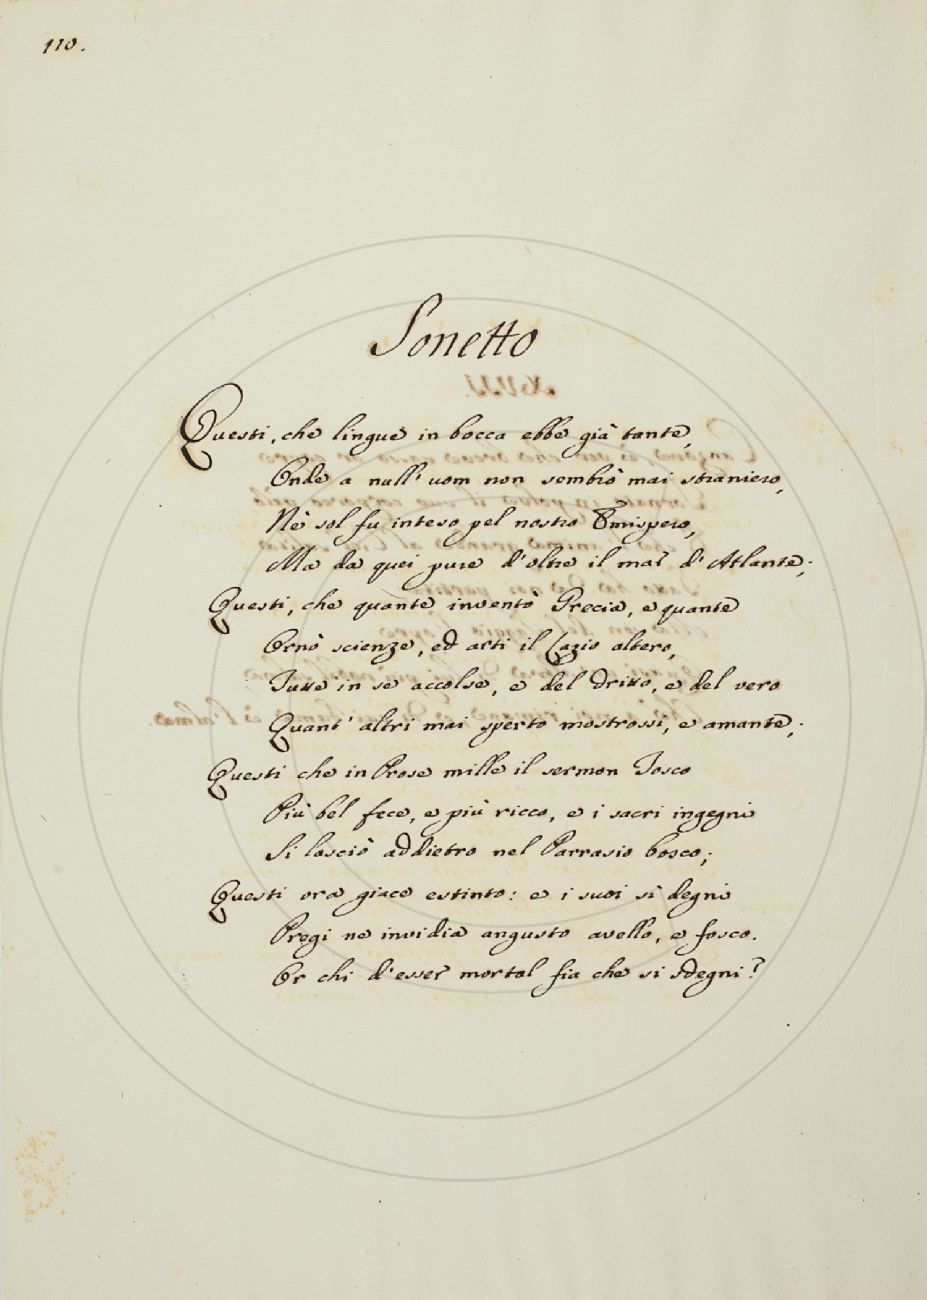 110.
Sonetto
Questi, che lingue in bocca ebbe già tante,
Onde a null' uom non sembrò mai straniero,
Nè sol fu inteso pel nostro Emispero,
Ma da quei pure d'oltre il mar d'Atlante;
Questi, che quante inventò Grecia, e quante
Ornò scienze, ed arti il Lazio altero,
Tutte in se accolse, e del dritto, e del vero
Quant' altri mai sperto mostrossi, e amante;
Questi che in Prose mille il sermon Tosco
Più bel fece, e più ricco, e i sacri ingegni
Si lasciò addietro nel Parrasio bosco;
Questi ora giace estinto: e i suoi sì degni
Pregi ne invidia angusto avello, e fosco.
Or chi d'esser mortal fia che si sdegni?